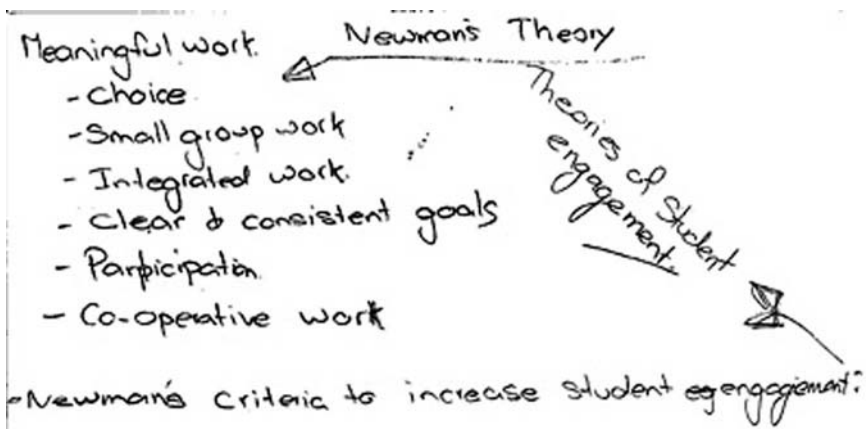 Newman's Theory
Meaningful work.
- Choice
- Small group work
- Integrated work.
- Clear & consistent goals
- Participation
- Co-operative work
Theories of Student
engagement.
- Newman's criteria to increase student eg engagement.